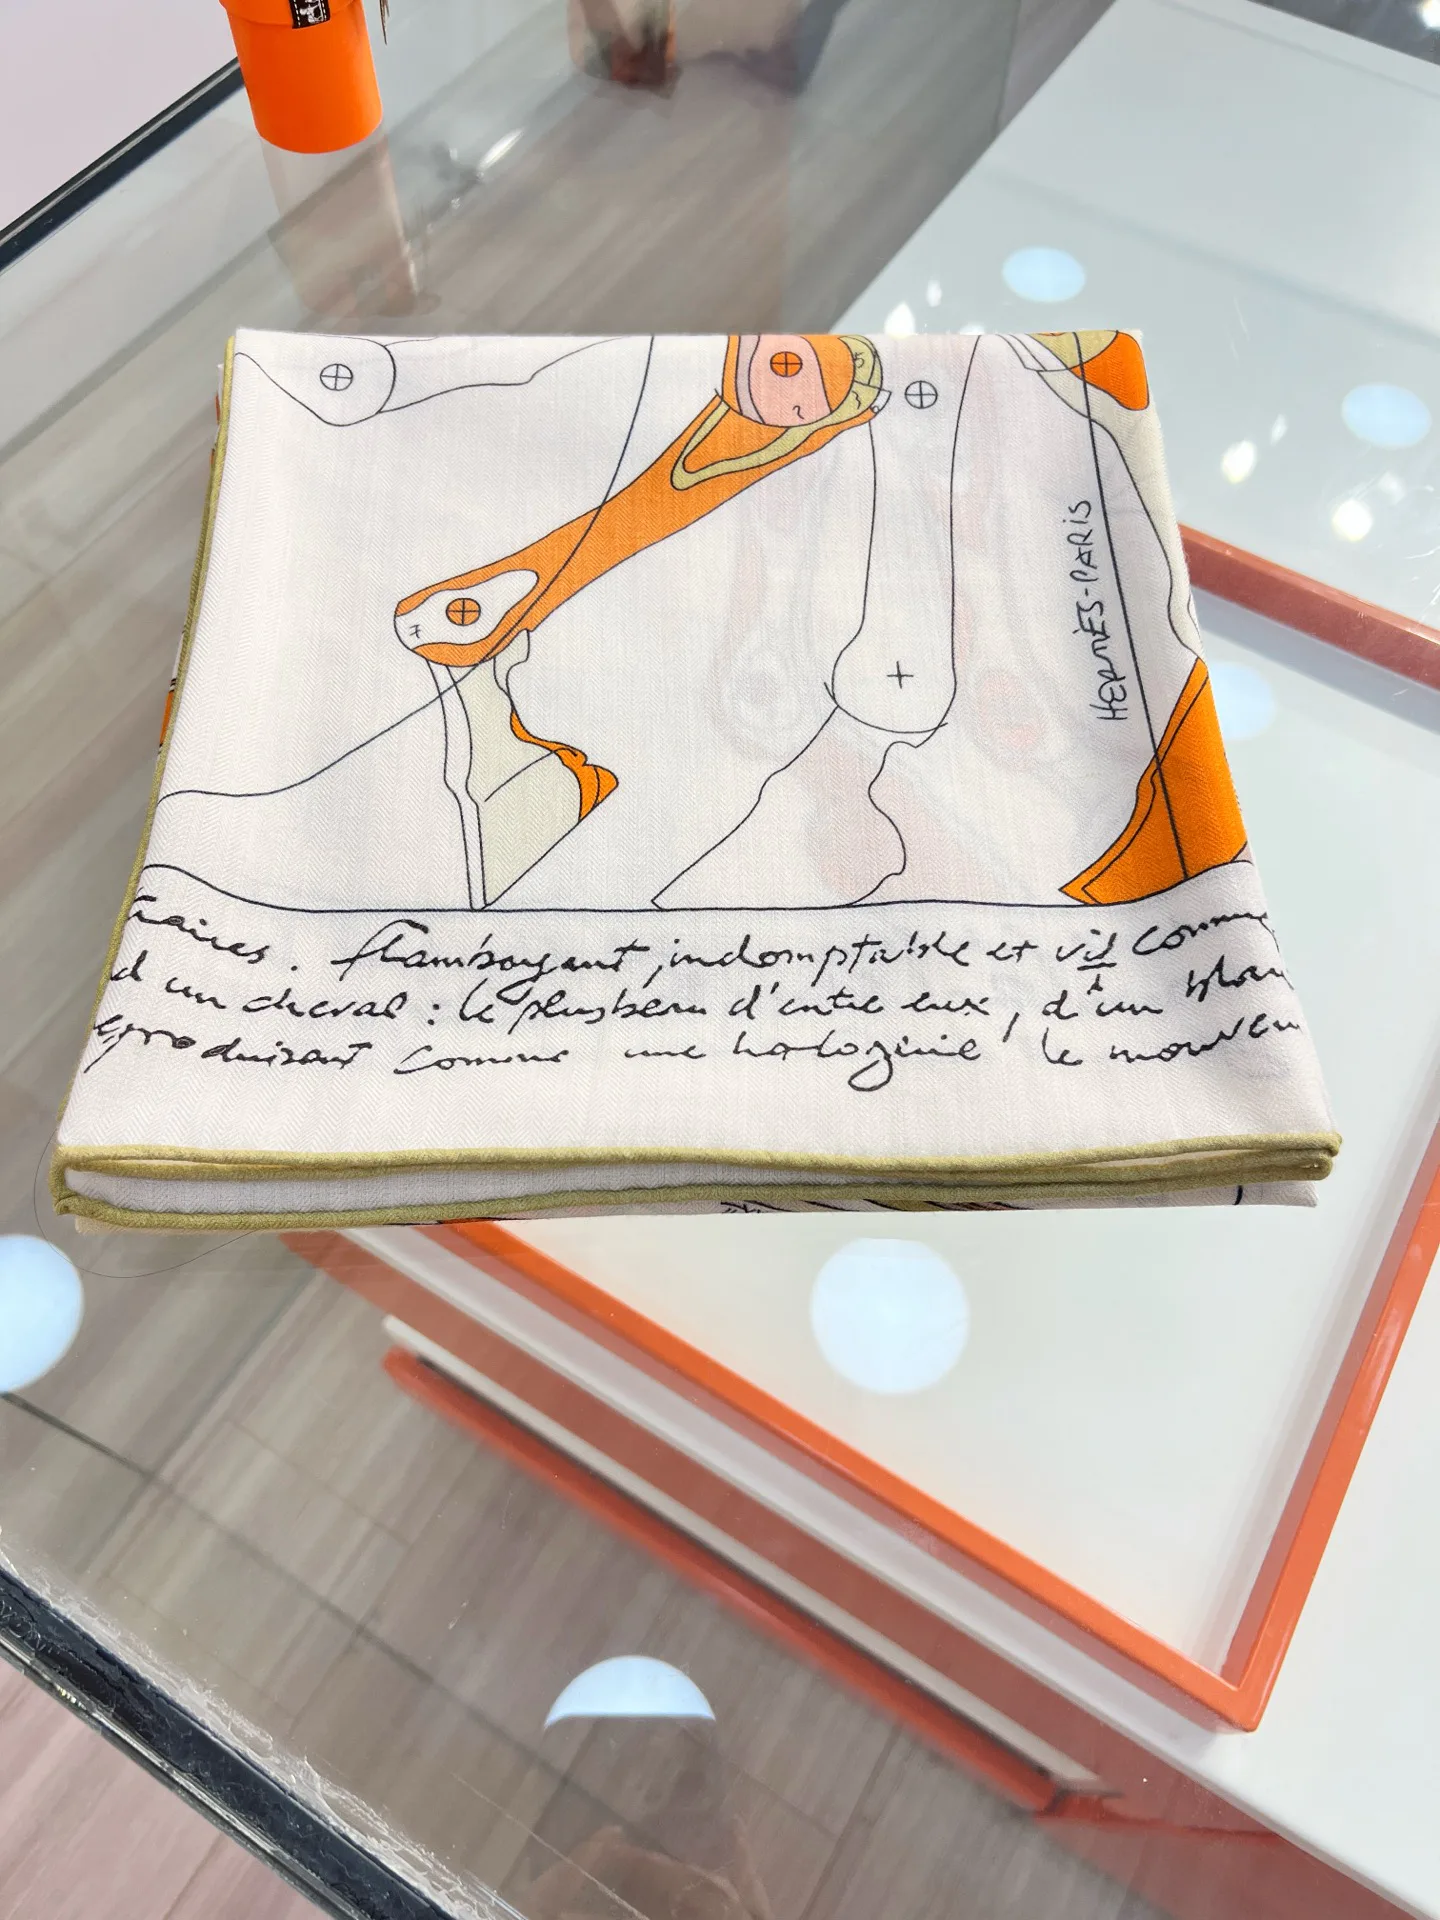 HERMÈS-PARIS
traires. flamboyant, indomptable et vif comme
d un cheval : le plus beau d'entre eux, d'un blan
eproduisant comme une horlogerie le mouvem